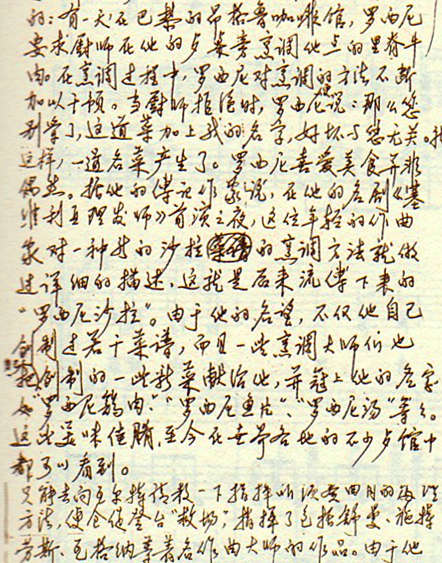 的: 有一天在巴黎的昂格鲁咖啡馆, 罗西尼
要求厨师在他的桌旁烹调他点的里脊牛
肉。在烹调过程中, 罗西尼对烹调的方法不断
加以干预。当厨师拒绝时, 罗西尼说: 那么您
别管了, 这道菜加上我的名字, 好坏与您无关。
这样, 一道名菜产生了。罗西尼喜爱美食并非
偶然。据他的传记作家说, 在他的名剧《塞
维利亚理发师》首演之夜, 这位年轻的作曲
家对一种新的沙拉的烹调方法就做
过详细的描述, 这就是后来流传下来的
“罗西尼沙拉”。由于他的名望, 不仅他自己
创制过若干菜谱, 而且一些烹调大师们也
把创制的一些新菜献给他, 并冠上他的名字
如“罗西尼鹅肉”、“罗西尼鱼片”、“罗西尼汤”等等。
这些美味佳腊, 至今在世界各地的不少餐馆中
都可以看到。
只能去向瓦尔特请教一下指挥所须要曲目的处理
方法, 便仓促登台“救场”, 指挥了包括舒曼、施特
劳斯、瓦格纳等著名作曲大师的作品。由于他